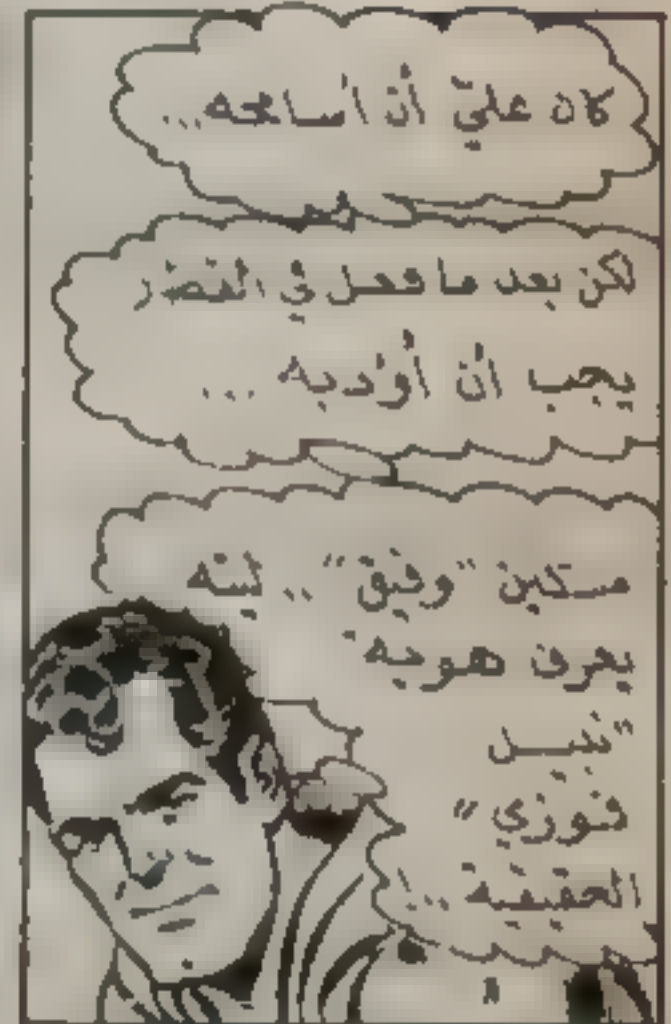 كان عليّ أن أسامحه...
لكن بعد ما فعل في القطار
يجب أن أؤدبه ...
مسكين "وفيق" .. ليته
يعرف هوية
"نبيل
فوزي"
الحقيقية ..!